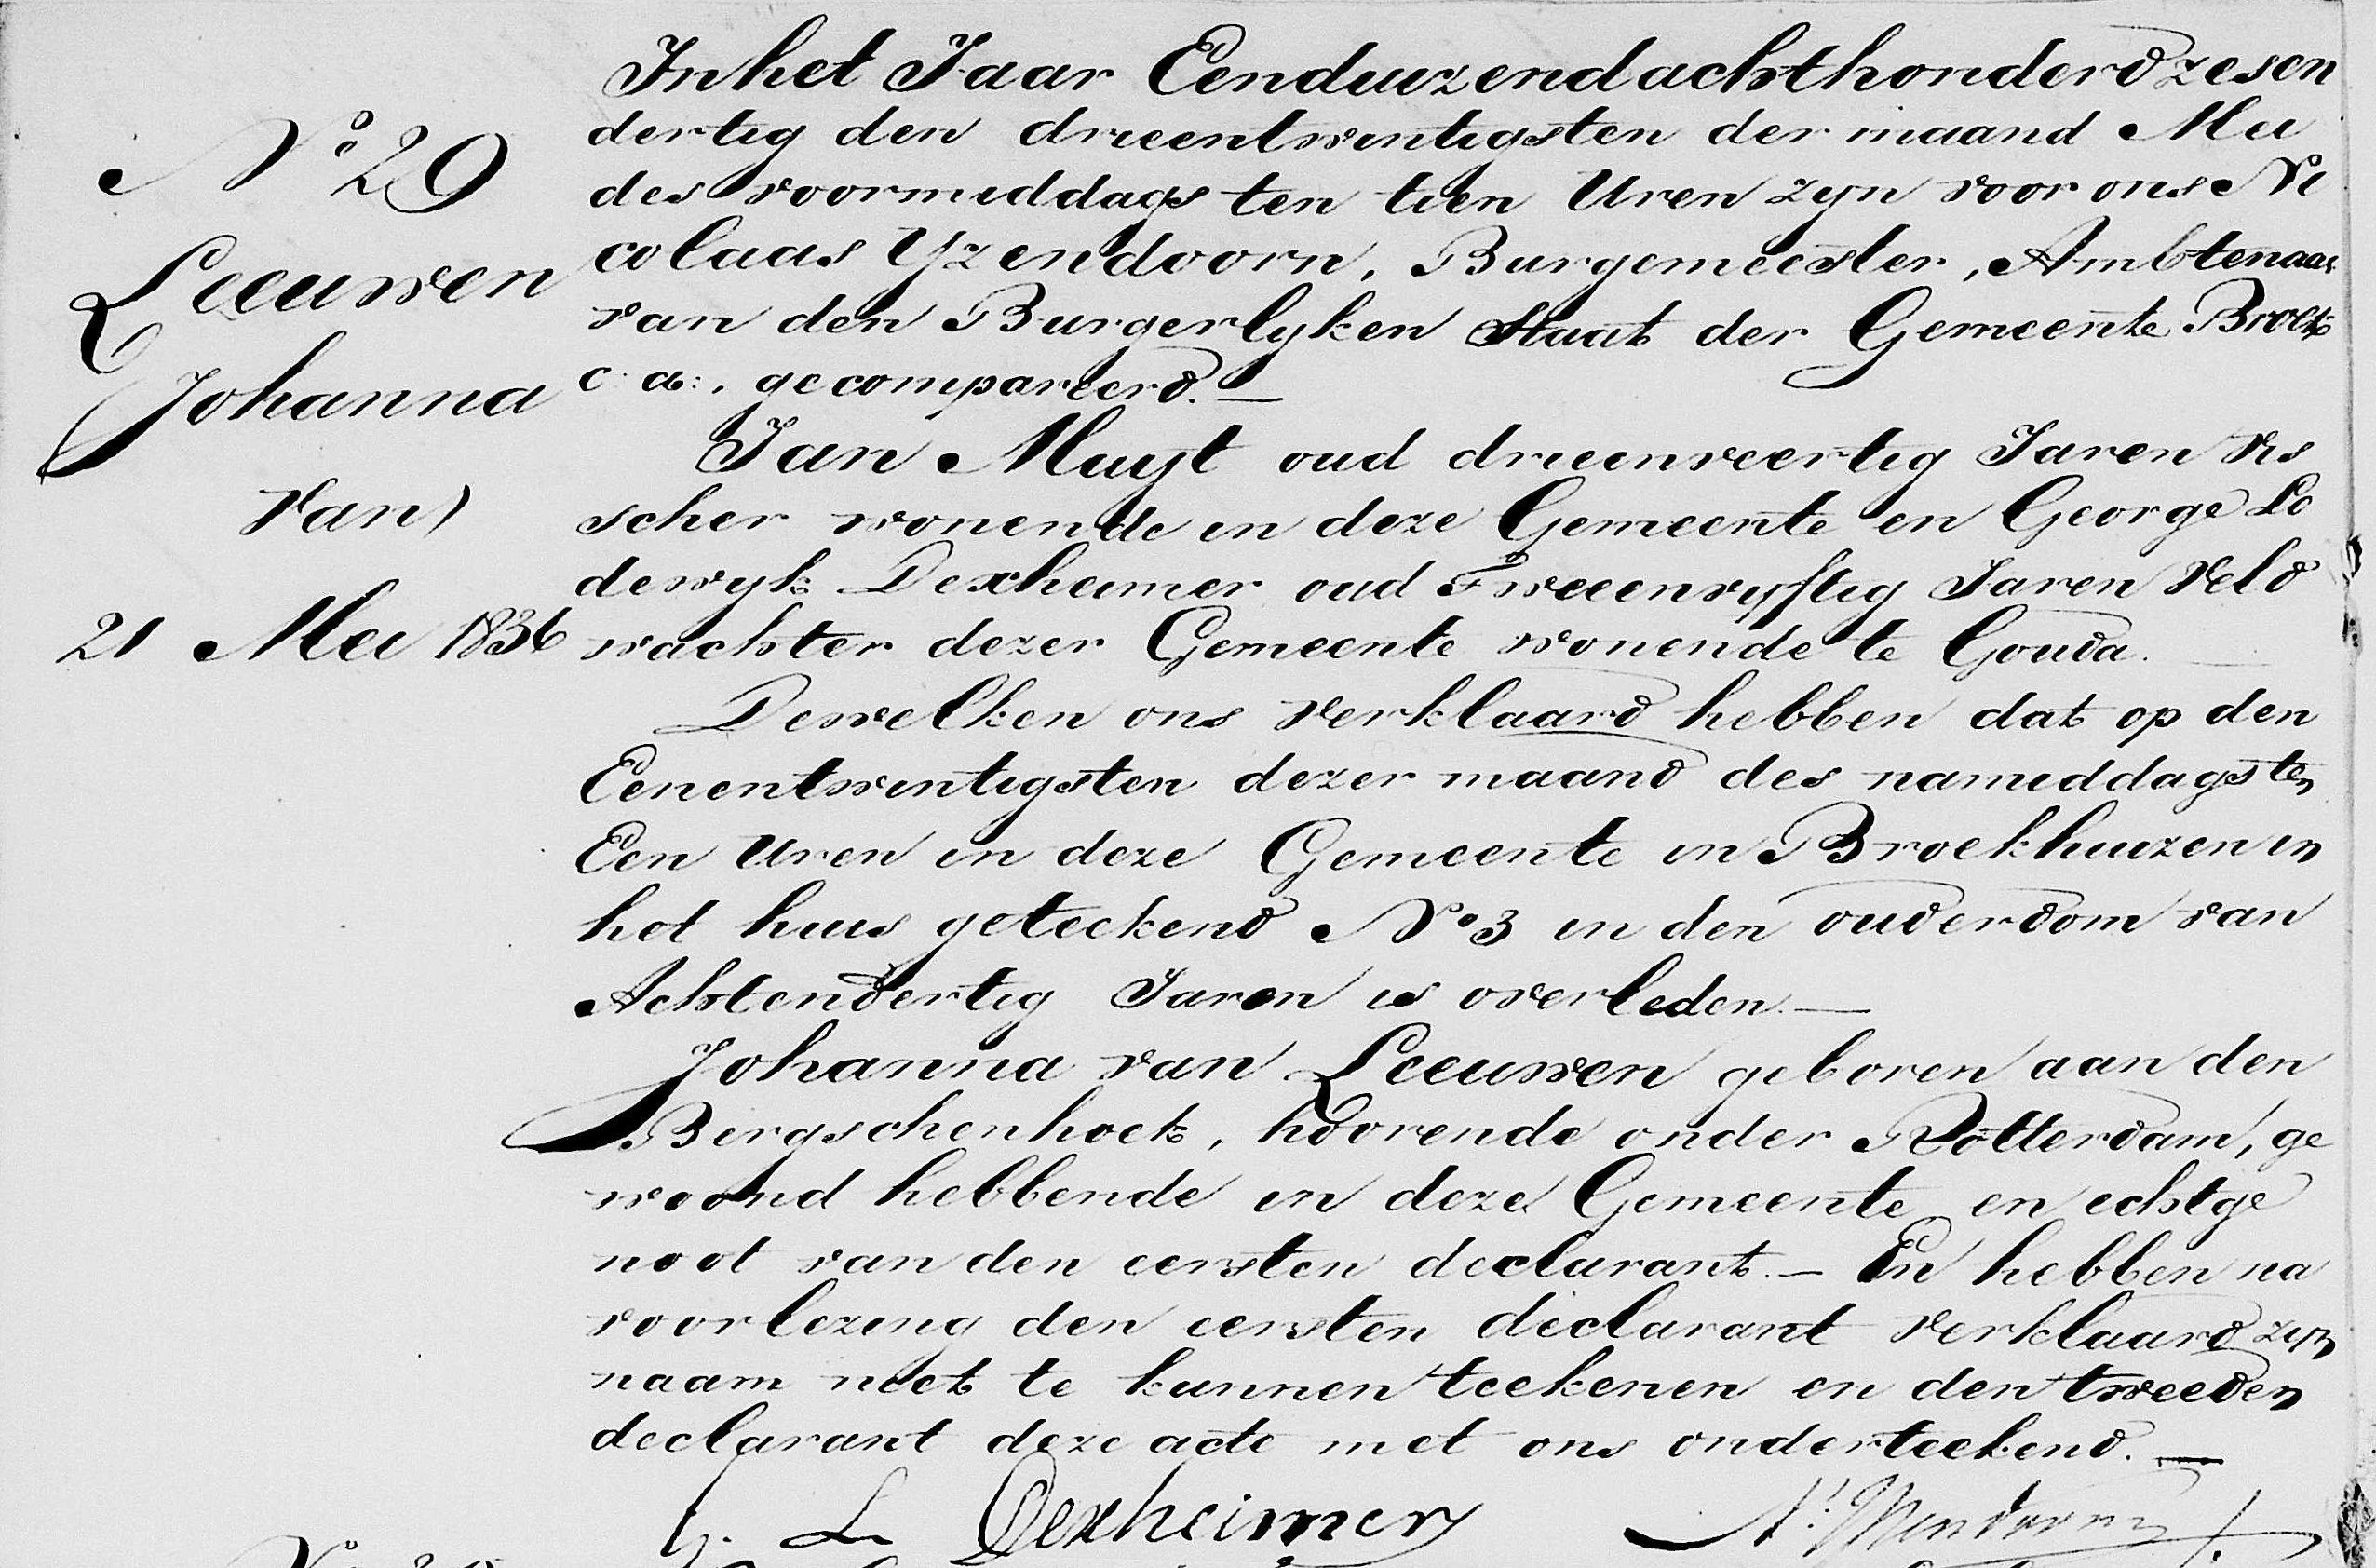 No 29
Leeuwen
Johanna
van
21 Mei 1836
In het Jaar Eenduizendachthonderd zesen
dertig den drieentwintigsten der maand Mei
des voormiddags ten tien Uren zyn voor ons Ni
colaas Yzendoorn, Burgemeester, Ambtenaar
van den Burgerlyken Staat der Gemeente Broek
c: a:, gecompareerd. —
Jan Muyt oud drieenveertig Jaren Vis
scher wonende in deze Gemeente en George Lo
dewyk Dexheimer oud Tweeenvyftig Jaren Veld
wachter dezer Gemeente wonende te Gouda.
Dewelken ons verklaard hebben dat op den
Eenentwintigsten dezer maand des namiddags ten
Een Uren in deze Gemeente in Broekhuizen in
het huis geteekend No 3 in den ouderdom van
Achtendertig Jaren is overleden. —
Johanna van Leeuwen geboren aan den
Bergschenhoek, hoorende onder Rotterdam, ge
woond hebbende in deze Gemeente en echtge
noot van den eersten declarant. — En hebben na
voorlezing den eersten declarant verklaard zyn
naam niet te kunnen teekenen en den tweeden
declarant deze acte met ons onderteekend. —
G. L. Dexheimer